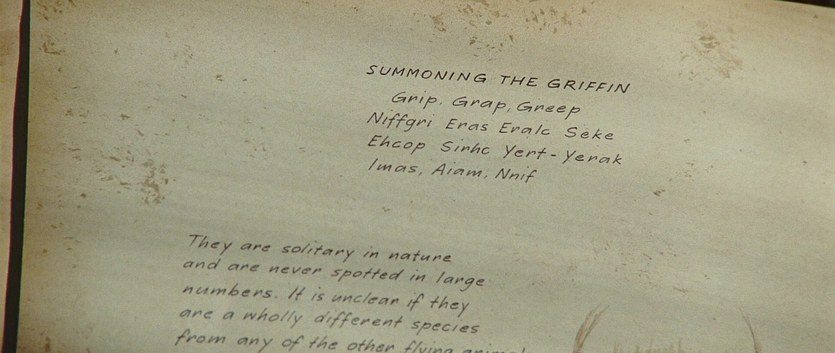 SUMMONING THE GRIFFIN
Grip. Grap, Greep
Niffgri Eras Eralc Seke
Ehcop Sirhc Yert-Yerak
Imas, Aiam, Nnif
They are solitary in nature
and are never spotted in large
numbers. It is unclear if they
are a wholly different species
from any of the other flying